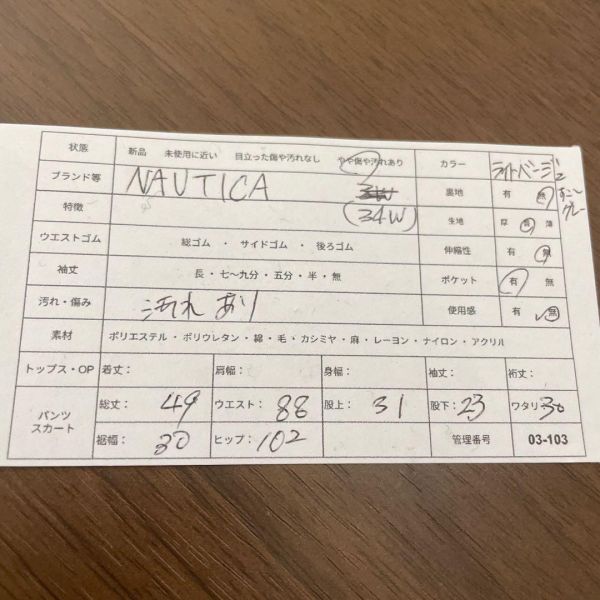 状態 新品 未使用に近い 目立った傷や汚れなし やや傷や汚れあり カラー ライトベージュ
ブランド等 NAUTICA 裏地 有 無
特徴 (34W) 生地 厚 普 薄
ウエストゴム 総ゴム ・ サイドゴム ・ 後ろゴム 伸縮性 有 無
袖丈 長・七〜九分・五分・半・無 ポケット 有 無
汚れ・傷み 汚れ あり 使用感 有 無
素材 ポリエステル・ポリウレタン・綿・毛・カシミヤ・麻・レーヨン・ナイロン・アクリル
トップス・OP 着丈: 肩幅: 身幅: 袖丈: 裄丈:
パンツ スカート 総丈: 49 ウエスト: 88 股上: 31 股下: 23 ワタリ: 30
裾幅: 30 ヒップ: 102 管理番号 03-103